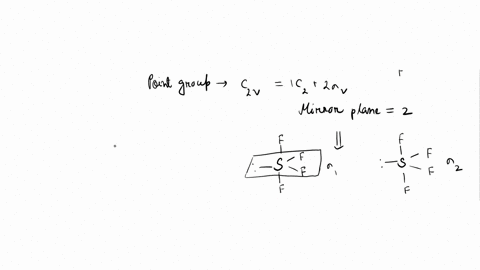 Point group → C2v = 1C2 + 2σv
Mirror plane = 2
⇓
F F
:—S—F :—S—F
F σ1 F σ2
F F